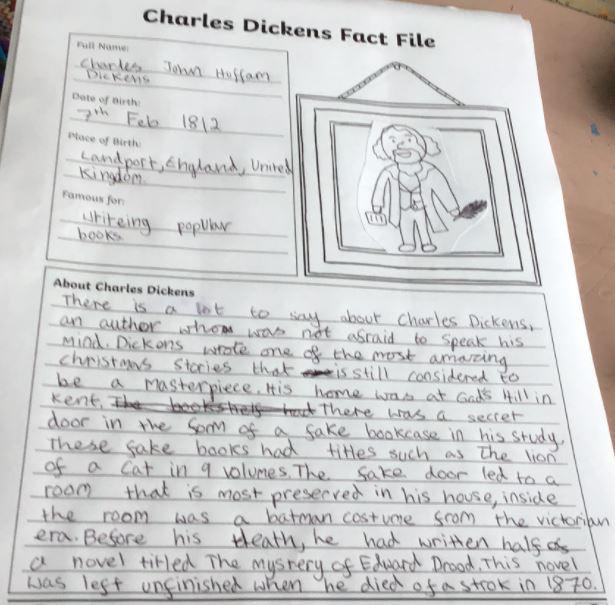 Charles Dickens Fact File
Full Name:
Charles John Huffam
Dickens
Date of Birth:
7th Feb 1812
Place of Birth:
Landport, England, United
Kingdom.
Famous for:
Writeing popular
books
About Charles Dickens
There is a lot to say about Charles Dickens,
an author whom was not afraid to speak his
mind. Dickens wrote one of the most amazing
christmas stories that is still considered to
be a masterpiece. His home was at Gad's Hill in
Kent. The bookshels had There was a secret
door in the form of a fake bookcase in his study.
These fake books had titles such as The lion
of a Cat in 9 volumes. The fake door led to a
room that is most preserved in his house, inside
the room was a batman costume from the victorian
era. Before his death, he had written half of
a novel titled The Mystrery of Edward Drood. This novel
was left unfinished when he died of a strok in 1870.